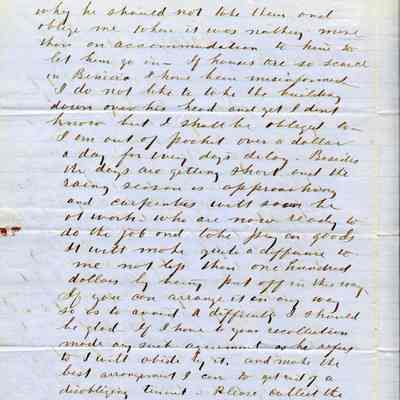 why he should not take them and
oblige me when it was nothing more
than an accommodation to him to
let him go in — If houses are so scarce
in Benicia I have been misinformed
I do not like to take the building
down over his head and yet I dont
know but I shall be obliged to —
I am out of pocket over a dollar
a day for every days delay. Besides
the days are getting short and the
rainy season is approaching
and carpenters will soon be
at work who are now ready to
do the job and take pay in goods
It will make quite a differance to
me not less than one hundred
dollars by being put off in this way
If you can arrange it in any way
so as to avoid a difficulty I should
be glad. If I have to your recollection
made any such agreement as he
to I will abide by it, and make the
best arrangement I can to get rid of a
disobliging tenant. Please collect the